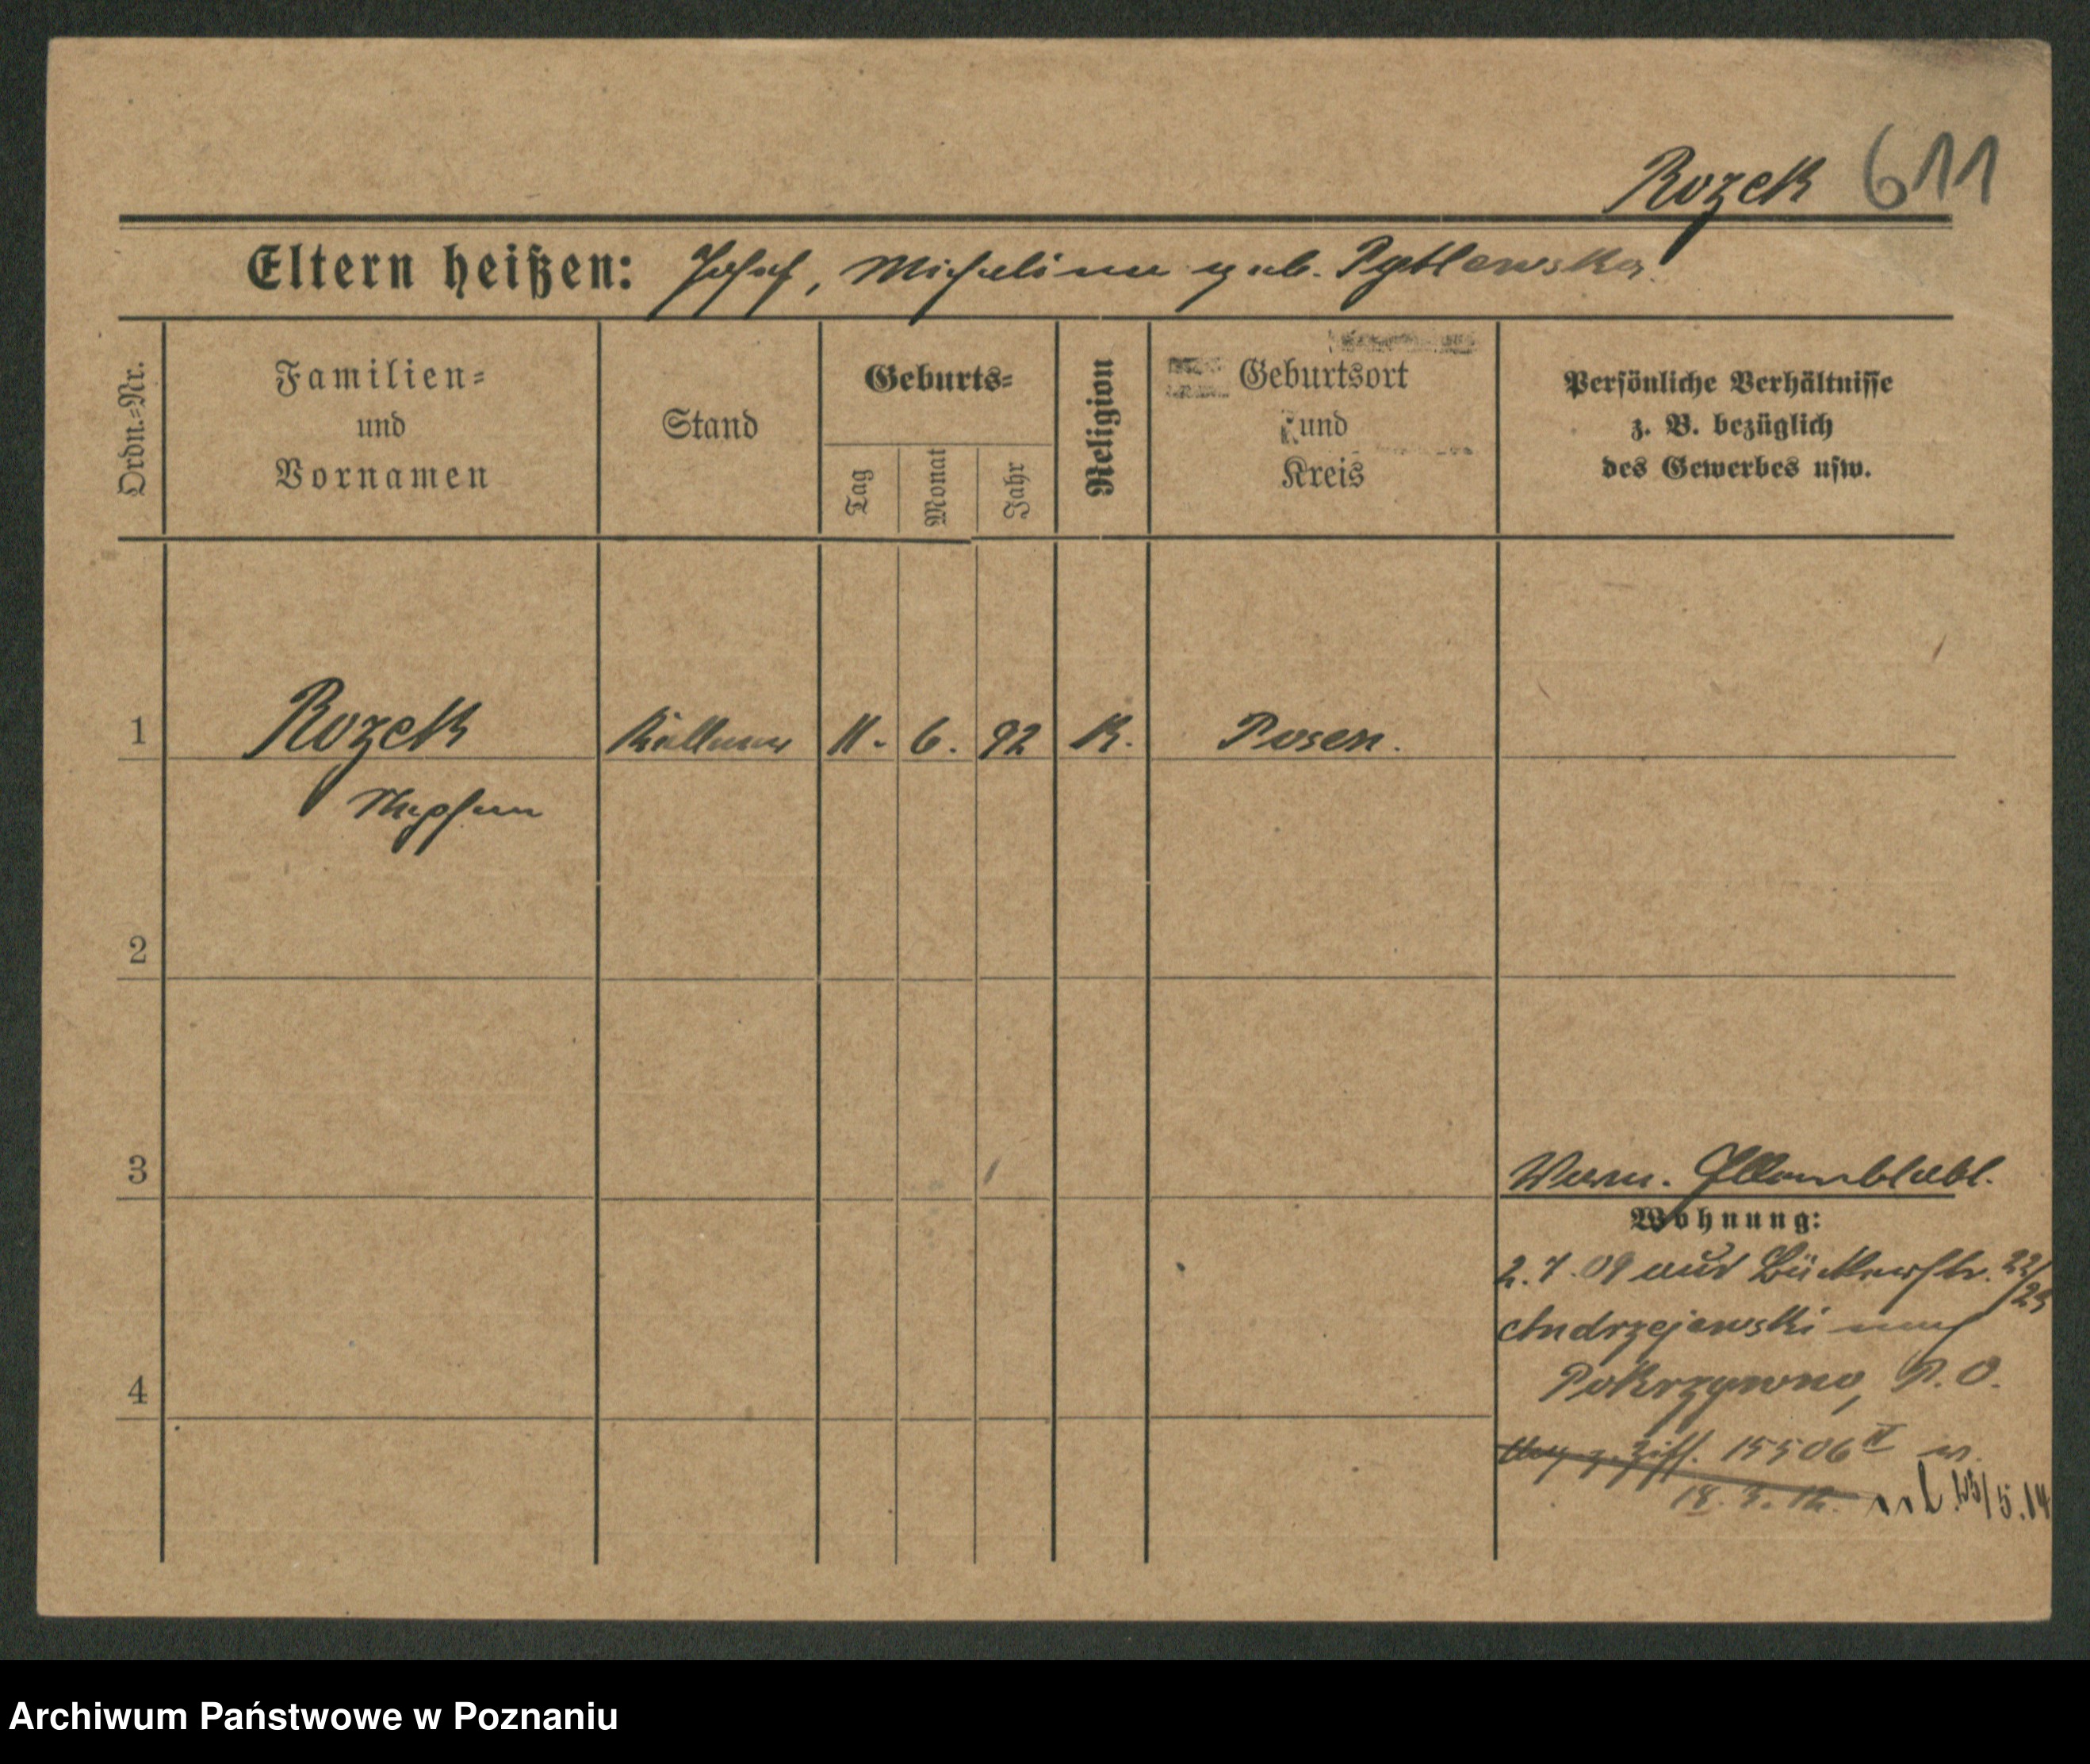 Rozek 611
Eltern heißen: Josef, Michalina geb. Pytlewska.
Ordn.-Nr.
Familien-
und
Vornamen
Stand
Geburts-
Tag
Monat
Jahr
Religion
Geburtsort
und
Kreis
Persönliche Verhältnisse
z. B. bezüglich
des Gewerbes usw.
1 Rozek Kellner 11. 6. 92 K. Posen.
Stephan
2
3
Wohnung:
2. 7. 09 aus 22/23
Andrzejewski nach
Pokrzywno, P. O.
4
15506 II
18. 3. 12. 13/5.14
Archiwum Państwowe w Poznaniu